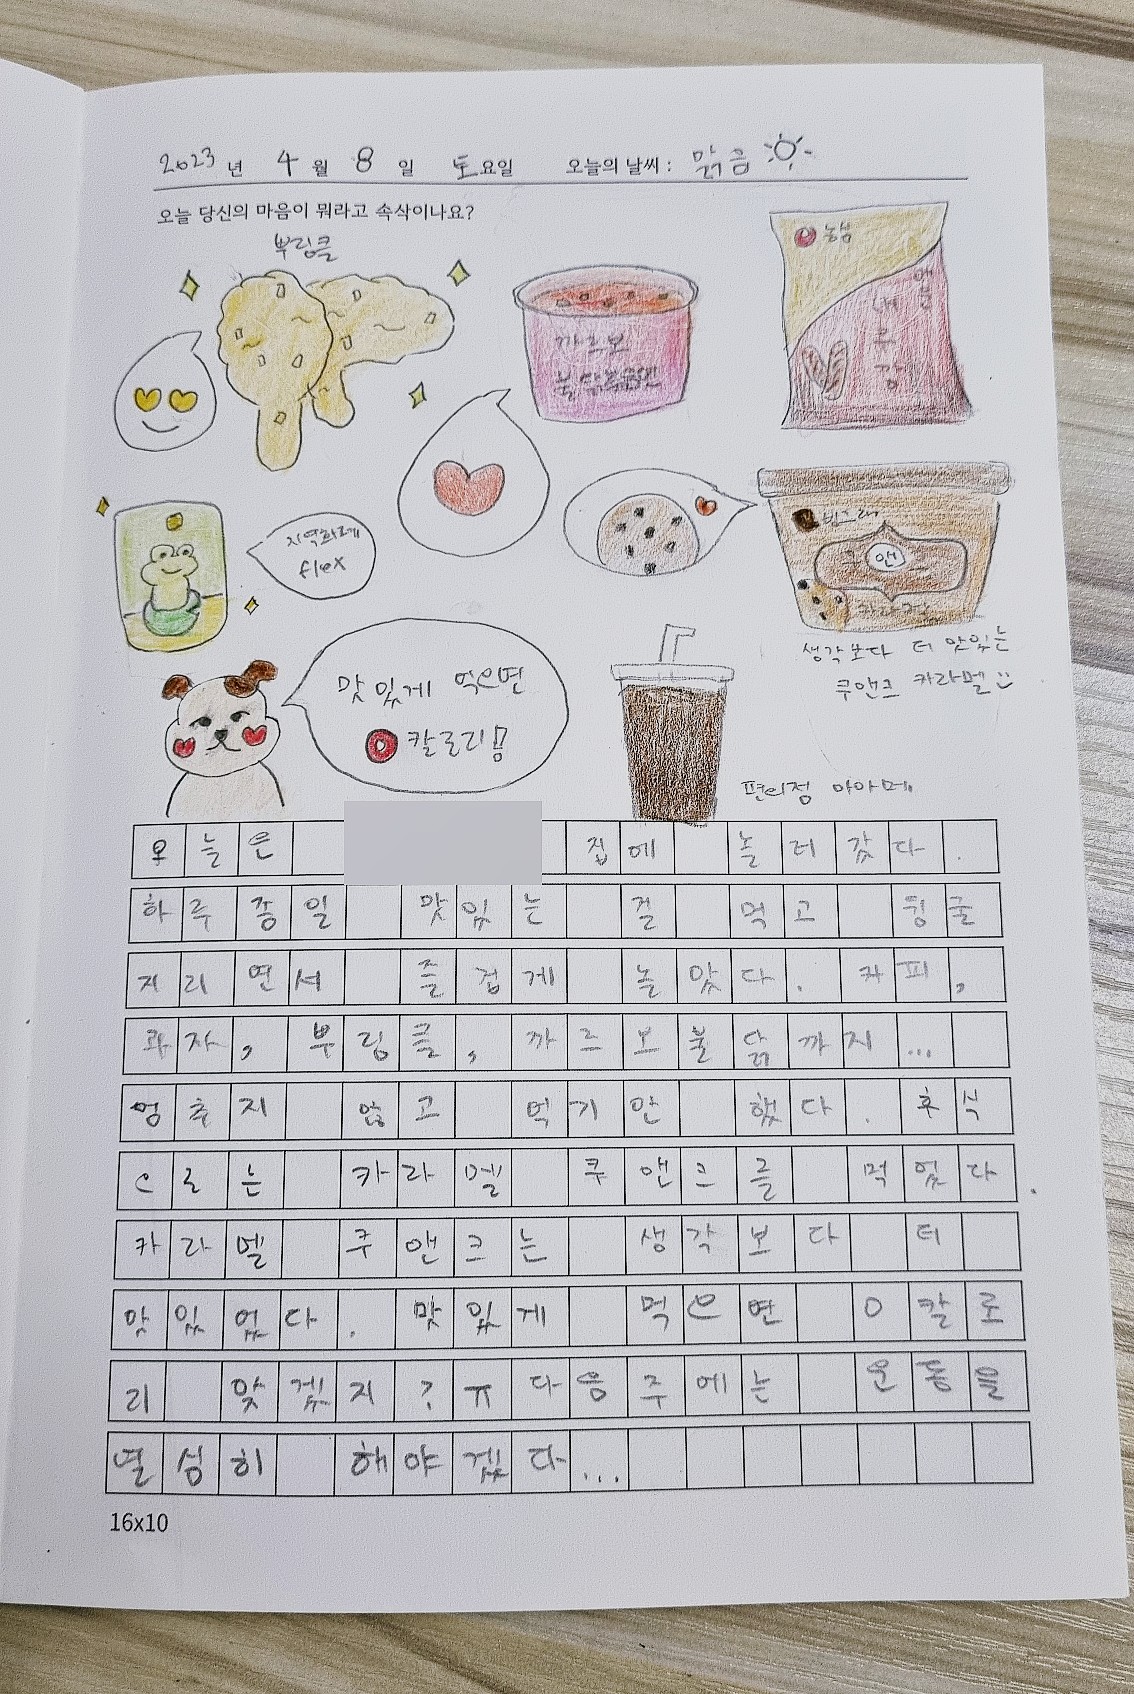 2023년 4월 8일 토요일 오늘의 날씨 : 맑음
오늘 당신의 마음이 뭐라고 속삭이나요?
뿌링클
농심
새우깡
까르보
불닭볶음면
지역화폐
flex
빙그레
앤
생각보다 더 맛있는
쿠앤크 카라멜
맛있게 먹으면
0칼로리
편의점 아아메
오늘은 집에 놀러갔다.
하루종일 맛있는 걸 먹고 뒹굴
거리면서 즐겁게 놀았다. 커피,
과자, 뿌링클, 까르보불닭까지...
멈추지 않고 먹기만 했다. 후식
으로는 카라멜 쿠앤크를 먹었다.
카라멜 쿠앤크는 생각보다 더
맛있었다. 맛있게 먹으면 0칼로
리 맞겠지? ㅠ 다음주에는 운동을
열심히 해야겠다...
16x10